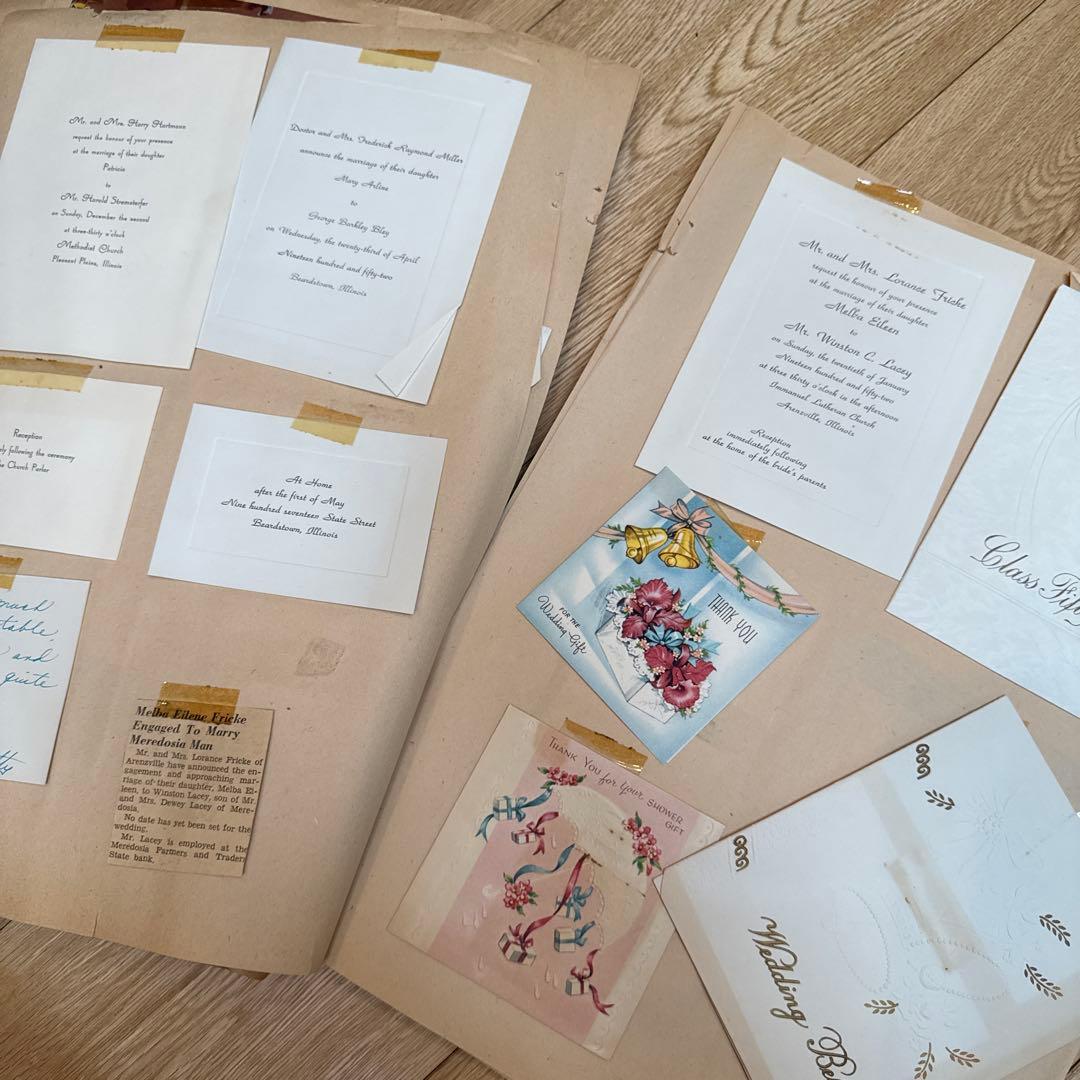 Mr. and Mrs. Harry Hartmann
request the honour of your presence
at the marriage of their daughter
Patricia
to
Mr. Harold Stremsterfer
on Sunday, December the second
at three-thirty o'clock
Methodist Church
Pleasant Plains, Illinois
Doctor and Mrs. Frederick Raymond Miller
announce the marriage of their daughter
Mary Arline
to
George Barkley Bley
on Wednesday, the twenty-third of April
Nineteen hundred and fifty-two
Beardstown, Illinois
Reception
following the ceremony
Church Parlor
At Home
after the first of May
Nine hundred seventeen State Street
Beardstown, Illinois
and
quite
Melba Eilene Fricke
Engaged To Marry
Meredosia Man
Mr. and Mrs. Lorance Fricke of
Arenzville have announced the en-
gagement and approaching mar-
riage of their daughter, Melba Ei-
leen, to Winston Lacey, son of Mr.
and Mrs. Dewey Lacey of Mere-
dosia.
No date has yet been set for the
wedding.
Mr. Lacey is employed at the
Meredosia Farmers and Traders
State bank.
Mr. and Mrs. Lorance Fricke
request the honour of your presence
at the marriage of their daughter
Melba Eileen
to
Mr. Winston C. Lacey
on Sunday, the twentieth of January
Nineteen hundred and fifty-two
at three thirty o'clock in the afternoon
Immanuel Lutheran Church
Arenzville, Illinois
Reception
immediately following
at the home of the bride's parents
THANK YOU
FOR THE
Wedding Gift
THANK YOU for Your SHOWER
GIFT
Class
Wedding